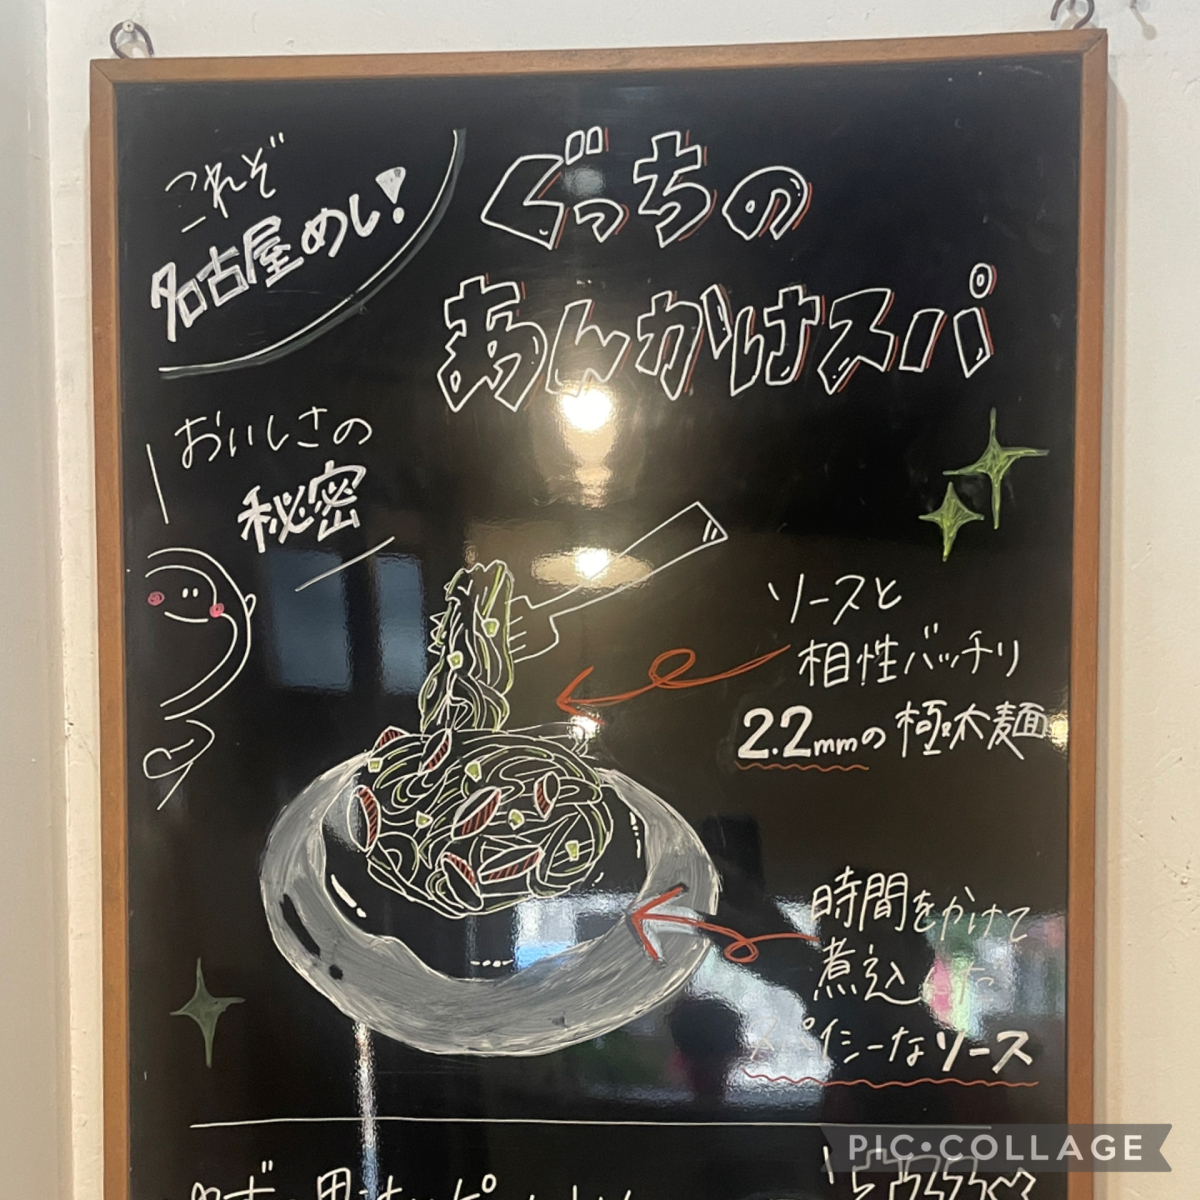 これぞ
名古屋めし!
ぐっちの
あんかけスパ
おいしさの
秘密
ソースと
相性バッチリ
2.2mmの極太麺
時間をかけて
煮込んだ
スパイシーなソース
PIC•COLLAGE